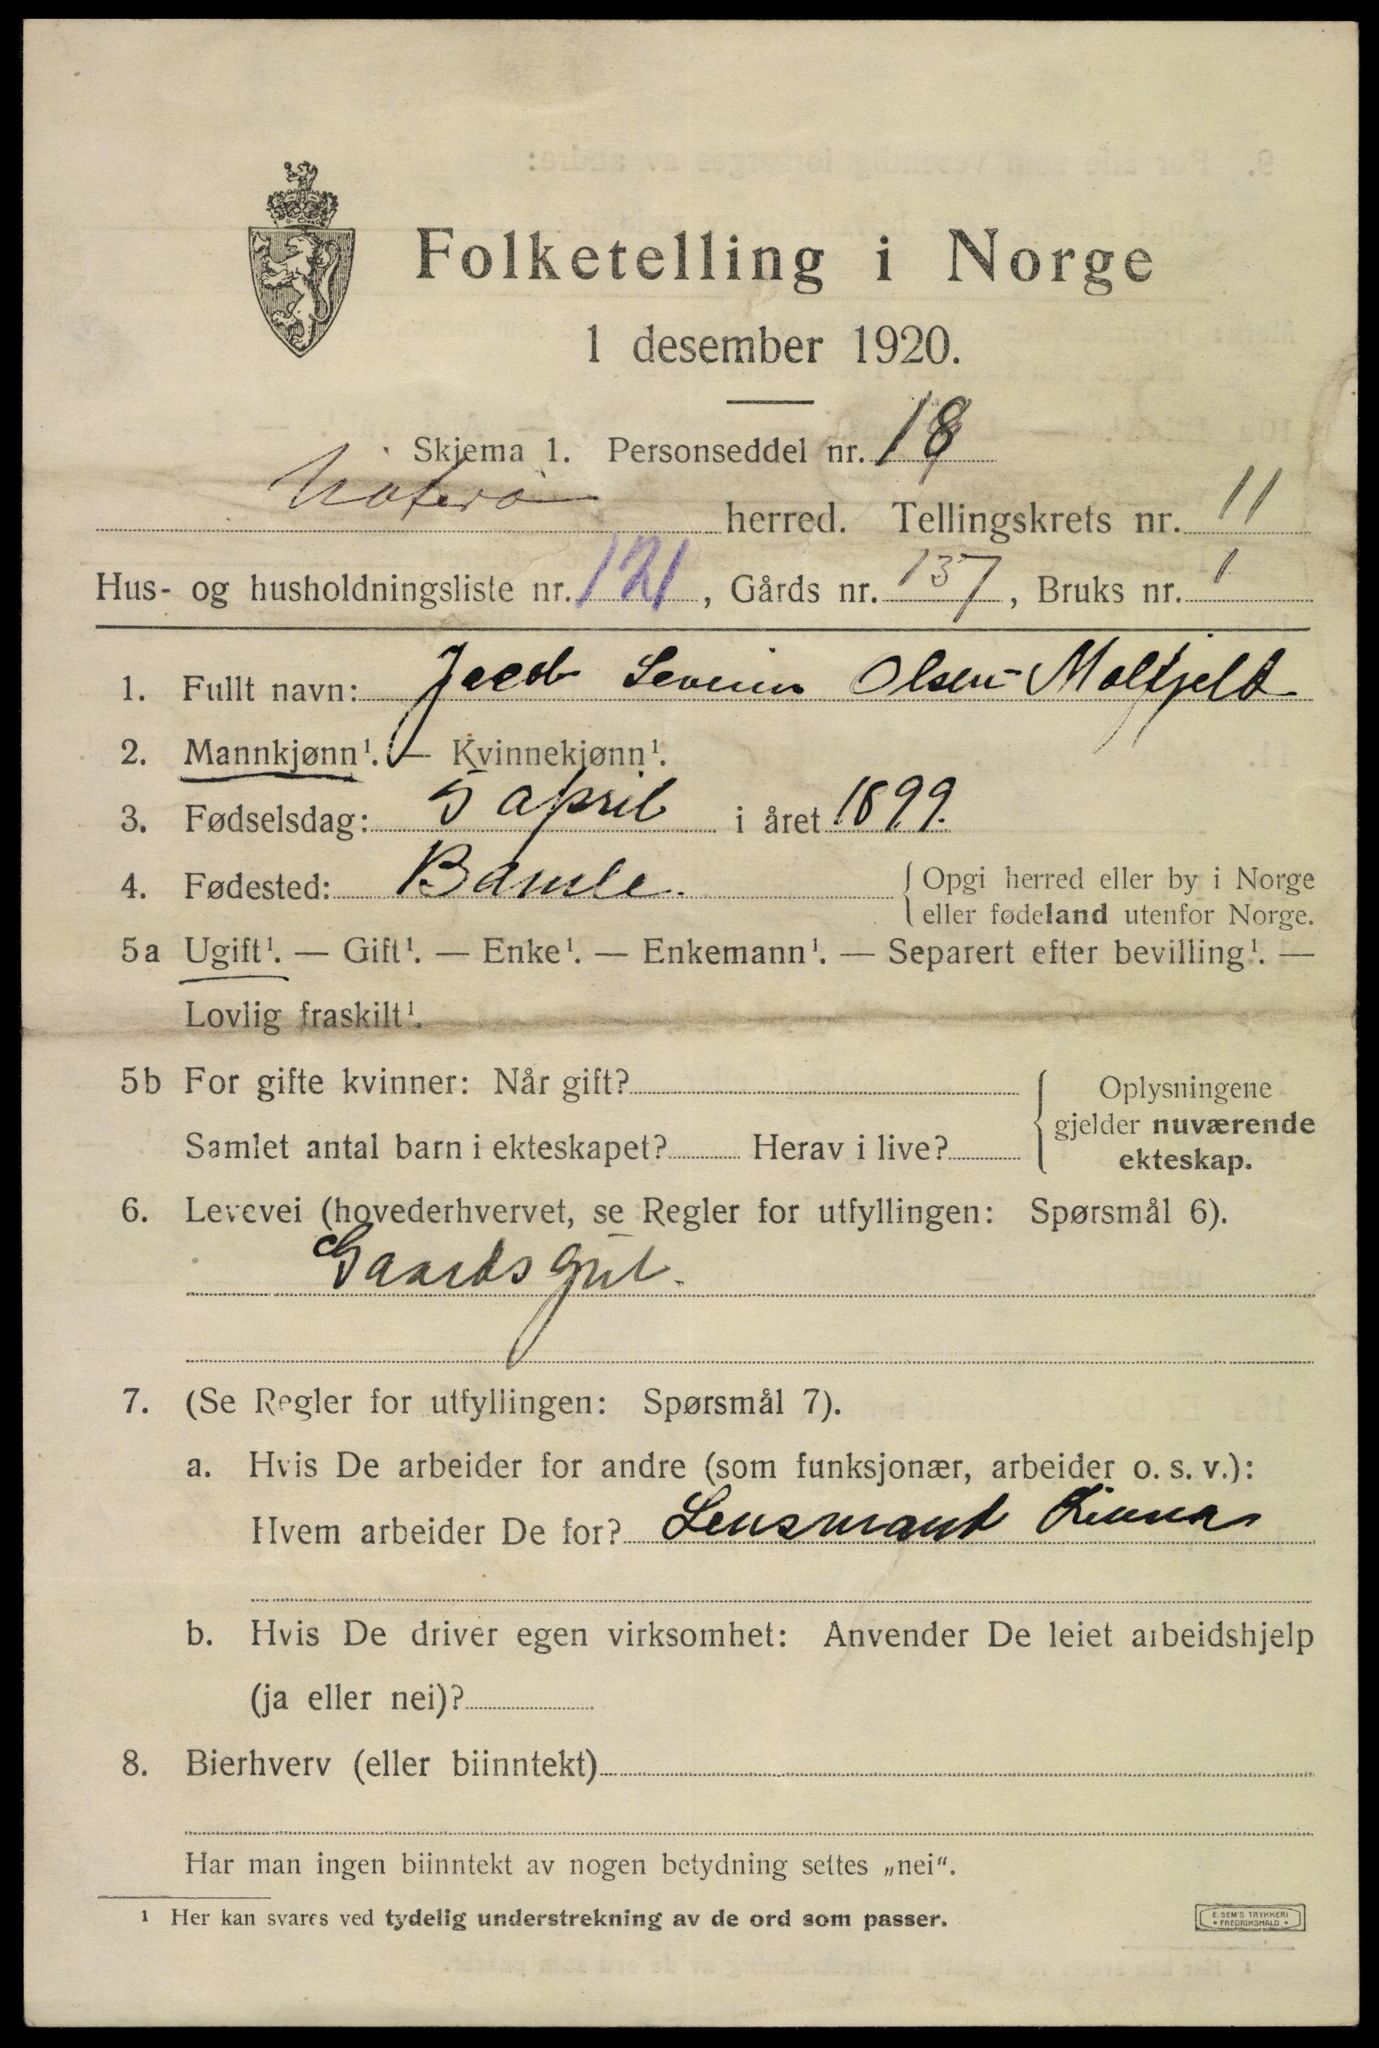 Folketelling i Norge
1 desember 1920.
Skjema 1. Personseddel nr. 18
Nøterø herred. Tellingskrets nr. 11
Hus- og husholdningsliste nr. 121, Gårds nr. 137, Bruks nr. 1
1. Fullt navn: Jacob Severin Olsen-Molfjeld
2. Mannkjønn¹. — Kvinnekjønn¹.
3. Fødselsdag: 5 april i året 1899.
4. Fødested: Bamle. { Opgi herred eller by i Norge
eller fødeland utenfor Norge.
5a Ugift¹. — Gift¹. — Enke¹. — Enkemann¹. — Separert efter bevilling¹. —
Lovlig fraskilt¹.
5b For gifte kvinner: Når gift?
Samlet antal barn i ekteskapet? Herav i live?
Oplysningene
gjelder nuværende
ekteskap.
6. Levevei (hovederhvervet, se Regler for utfyllingen: Spørsmål 6).
Gaardsgut.
7. (Se Regler for utfyllingen: Spørsmål 7).
a. Hvis De arbeider for andre (som funksjonær, arbeider o. s. v.):
Hvem arbeider De for? Lensmand
b. Hvis De driver egen virksomhet: Anvender De leiet arbeidshjelp
(ja eller nei)?
8. Bierhverv (eller biinntekt)
Har man ingen biinntekt av nogen betydning settes „nei“.
¹ Her kan svares ved tydelig understrekning av de ord som passer.
E. SEM'S TRYKKERI
FREDRIKSHALD